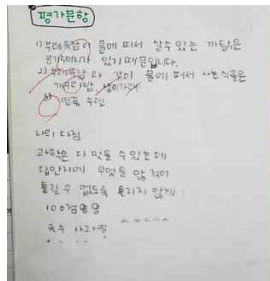 평가문항
1) 부레옥잠이 물에 떠서 살수 있는 까닭은
공기주머니가 있기 때문입니다.
2) 부레옥잠과 같이 물에 떠서 사는 식물은
개구리밥, 생이가래
나의 다짐
과학은 다 맞을 수 있는데
답안지에 무엇을 안 적어
틀릴 수 없도록 틀리지 않게
100점